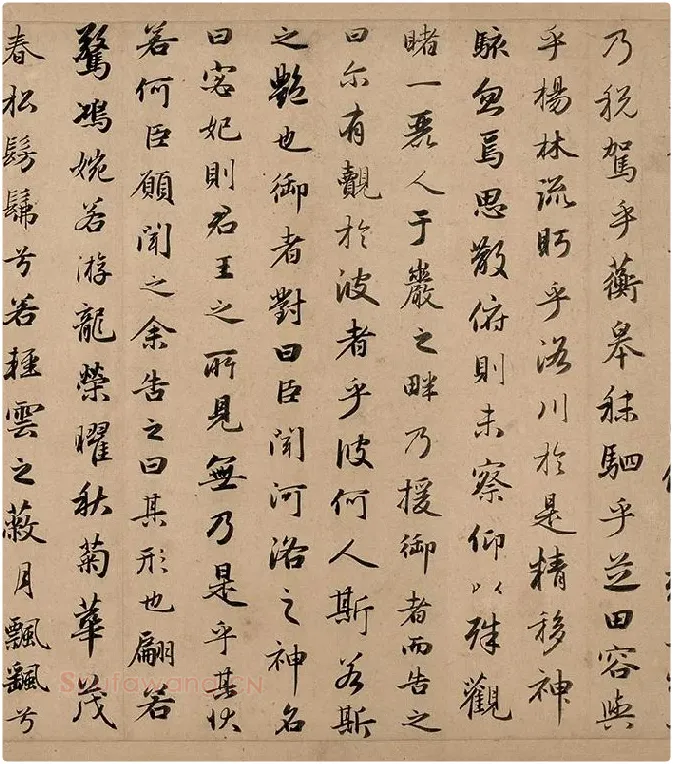 乃税駕乎蘅皋秣駟乎芝田容與
乎楊林流眄乎洛川於是精移神
駭忽焉思散俯則未察仰以殊觀
睹一麗人于巖之畔乃援御者而告之
曰尔有覿於彼者乎彼何人斯若斯
之艷也御者對曰臣聞河洛之神名
曰宓妃則君王之所見無乃是乎其狀
若何臣願聞之余告之曰其形也翩若
驚鴻婉若游龍榮曜秋菊華茂
春松髣髴兮若輕雲之蔽月飄飖兮
Shufawang.CN